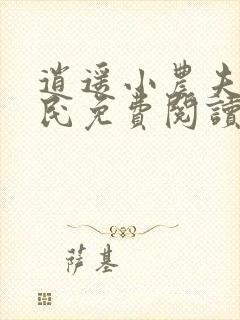 逍遥小農夫
民免費閱讀
萨基